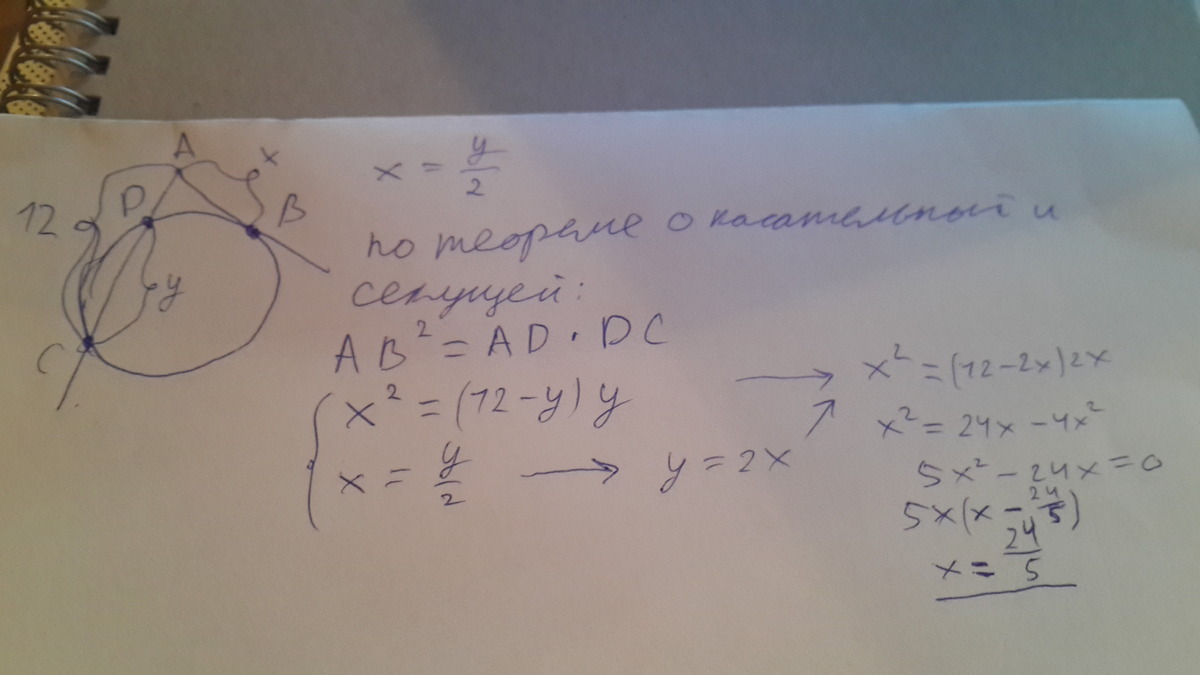 A
x
D
B
12
y
C
x = y/2
по теореме о касательный и
секущей:
AB² = AD · DC
x² = (12 - y) y
x = y/2 → y = 2x
→ x² = (12 - 2x)2x
x² = 24x - 4x²
5x² - 24x = 0
5x(x - 24/5)
x = 24/5